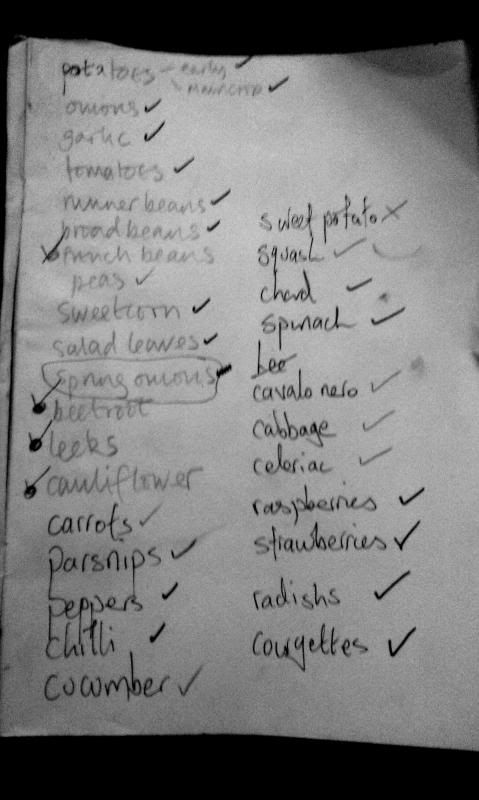 potatoes - early ✓
maincrop ✓
onions ✓
garlic ✓
tomatoes ✓
runner beans ✓
broad beans ✓
french beans
peas ✓
sweetcorn ✓
salad leaves ✓
spring onions
beetroot
leeks
cauliflower
carrots ✓
parsnips ✓
peppers ✓
chilli ✓
cucumber ✓
sweet potato ✗
squash ✓
chard ✓
spinach ✓
bee
cavalo nero ✓
cabbage ✓
celeriac ✓
raspberries ✓
strawberries ✓
radishs ✓
courgettes ✓